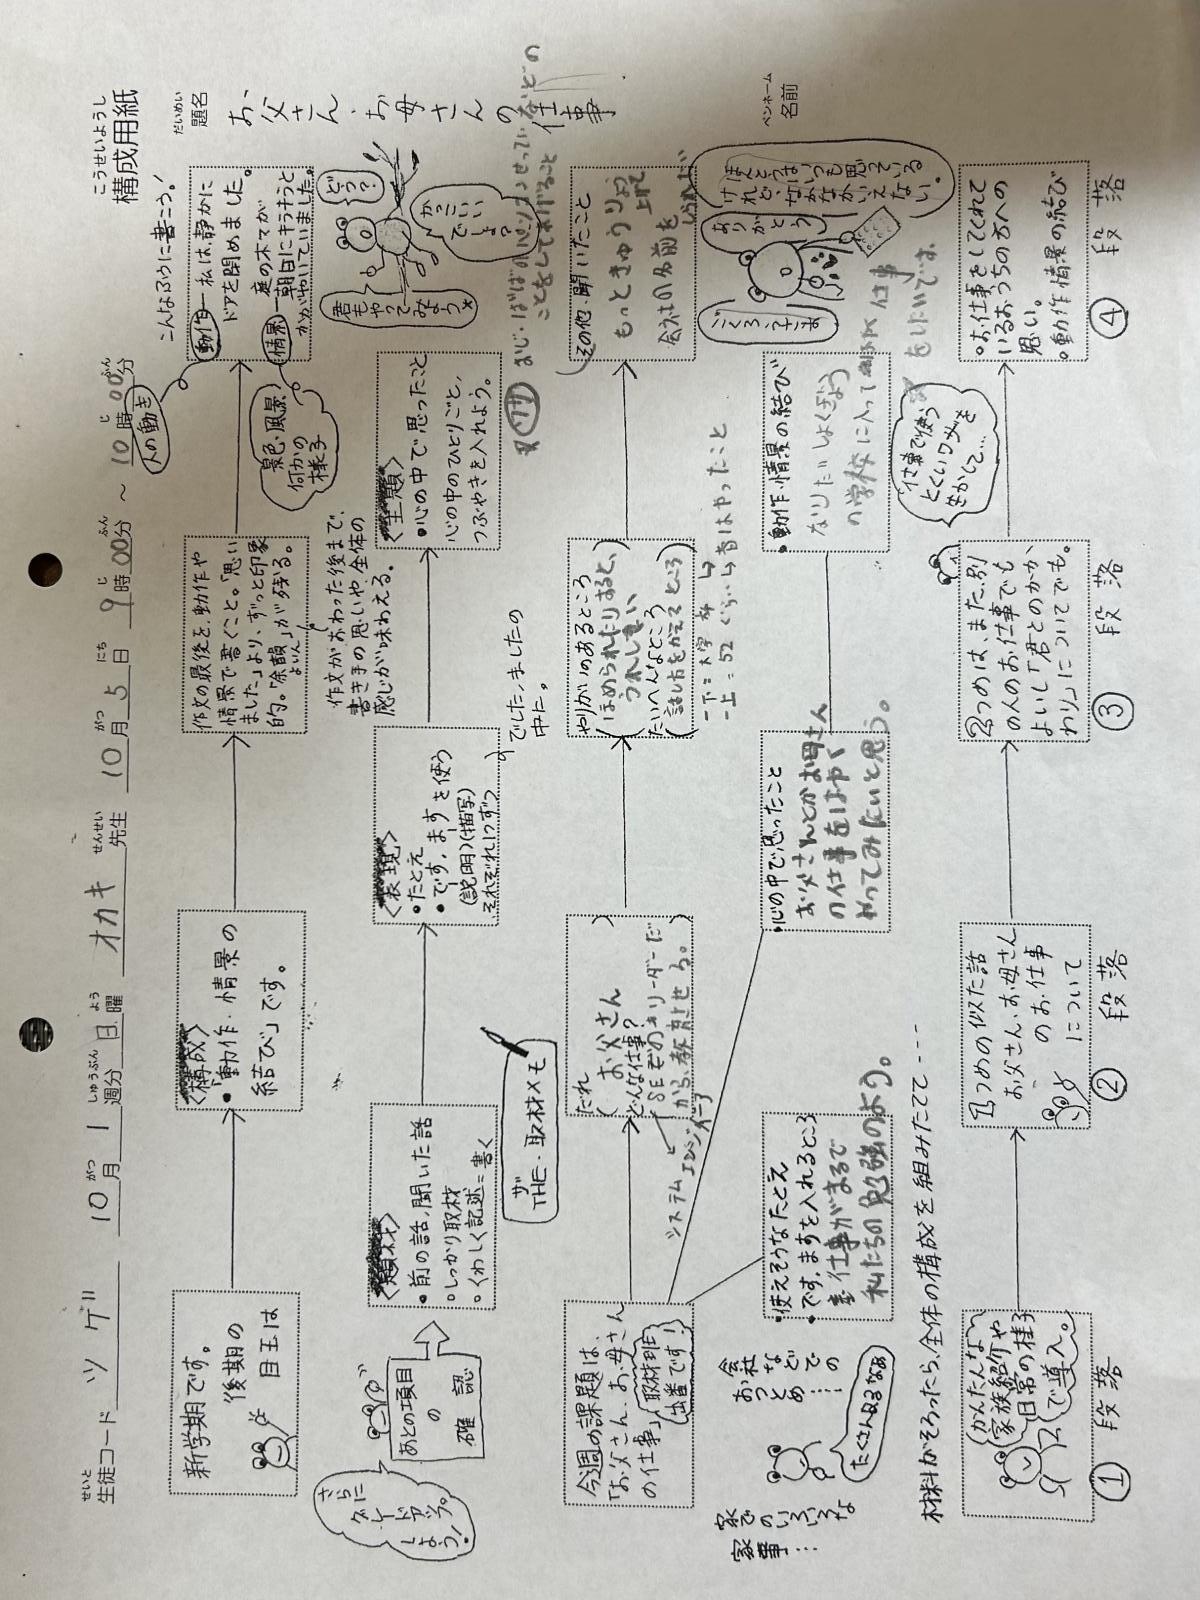 構成用紙
こうせいようし
題名
だいめい
お父さん・お母さんの仕事
名前
ペンネーム
生徒コード ツゲ 10月1週分 日曜 オカキ先生 10月5日 9時00分～10時00分
せいと
がつ
しゅうぶん
よう
せんせい
がつ
にち
じ
ふん
じ
ふん
こんなふうに書こう！
新学期です。
後期の
目玉は
〈構成〉
・「動作・情景の
結び」です。
作文の最後を、動作や
情景で書くこと。「思い
ました」より、ずっと印象
的。「余韻」が残る。
よいん
作文がおわった後まで、
書き手の思いや、全体の
感じが味わえる。
動作
私は静かに
ドアを閉めました。
情景
庭の木々が
朝日にキラキラと
かがやいていました。
人の動き
景色・風景
何かの
様子
さらに
グレードアップ
しよう！
あとの項目
の
確認
〈題材〉
・前の話、聞いた話
・しっかり取材
・くわしく記述＝書く
〈表現〉
・たとえ
・です。ますを使う
(説明)(描写)
それぞれ1つずつ
でした、ましたの
中に。
〈主題〉
・心の中で思ったこと
心の中のひとりごと、
つぶやきを入れよう。
どう？
かっこいい
でしょ？
君もやってみよう
ザ
THE・取材メモ
今週の課題は、
「お父さん、お母さん
の仕事」
取材班
出番です！
だれ
(お父さん)
どんな仕事？
SEぞのリーダーだ
から、教育させる。
システムエンジニア
やりがいのあるところ
(ほめられたりすると、
うれしい)
たいへんなところ
(話し方をかえるところ)
一下＝大学卒
一上＝52ぐらい
その他、聞いたこと
もっときゅうりょう
上げて
会社の名前を
家でのいろいろな
家事…
会社などでの
おつとめ…
たくさんあるなあ
・使えそうなたとえ
・です。ますを入れるところ
仕事がまるで
私たちの勉強のよう。
・心の中で思ったこと
お父さんとかお母さん
の仕事をはやく
やってみたいと思う。
・動作・情景の結び
なりたいしょくぎょう
の学校に入って
仕事
をしたいです。
ごくろうさま
ありがとう
ほんとうはいつも思っている
けれど、なかなかいえない。
材料がそろったら、全体の構成を組みたてて----
かんたんな
家族紹介や
日常の様子
で導入。
①段落
1つめの似た話
お父さん、お母さん
のお仕事
について
②段落
2つめは、また、別
の人のお仕事でも
よいし「君とのかか
わり」についてでも。
③段落
仕事で使う
とくいワザを
生かして…
・お仕事をしてくれて
いるおうちの方への
思い。
・動作、情景の結び
④段落